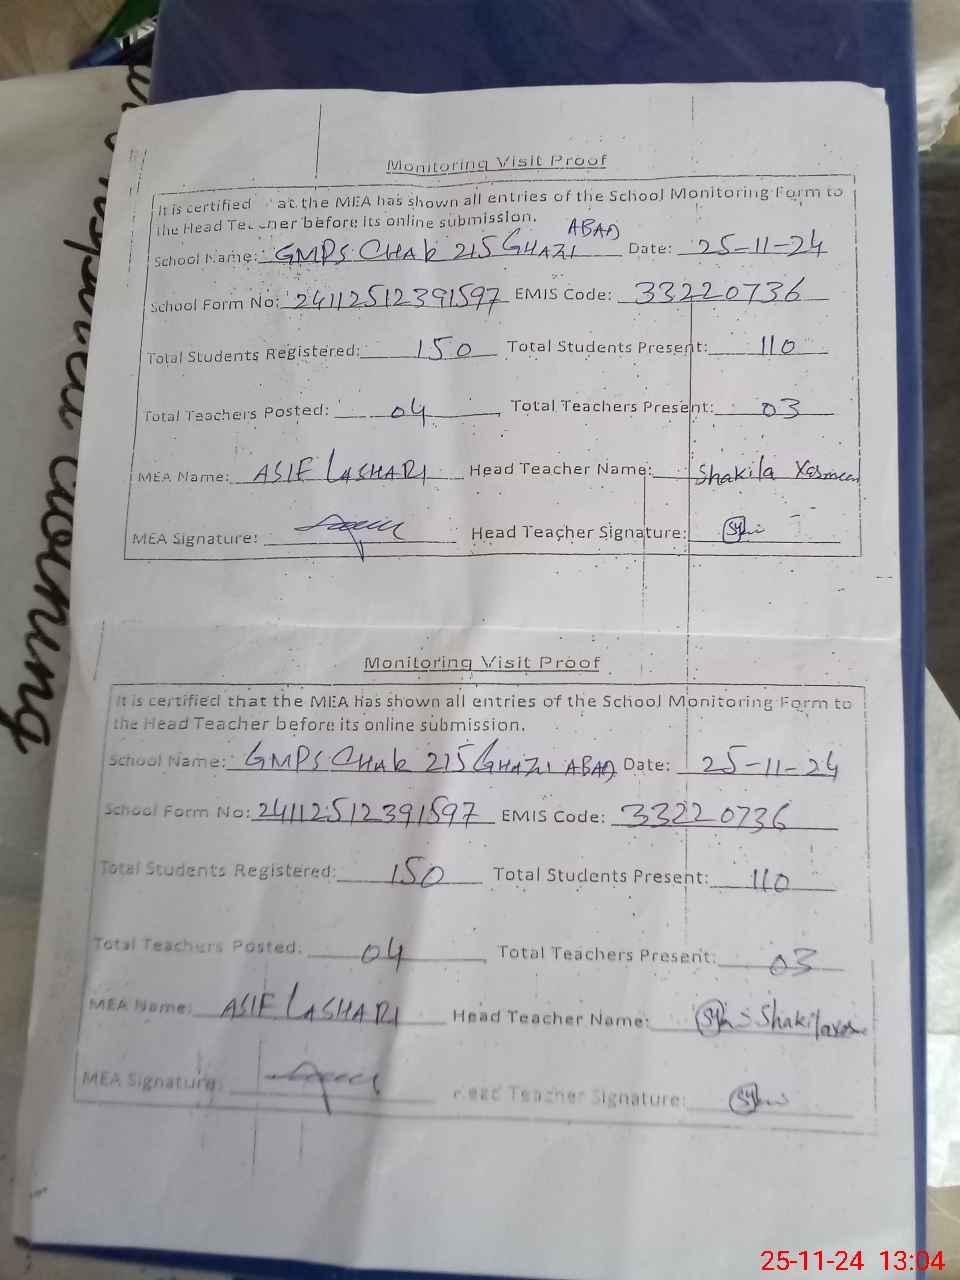 Monitoring Visit Proof
It is certified at the MEA has shown all entries of the School Monitoring Form to
the Head before its online submission.
School Name: GMPS CHAK 215 GHAZI ABAD Date: 25-11-24
School Form No: 24112512391597 EMIS Code: 33220736
Total Students Registered: 150 Total Students Present: 110
Total Teachers Posted: 04 Total Teachers Present: 03
MEA Name: ASIF LASHARI Head Teacher Name: Shakila Yasmeen
MEA Signature: Head Teacher Signature:
Monitoring Visit Proof
It is certified that the MEA has shown all entries of the School Monitoring Form to
the Head Teacher before its online submission.
School Name: GMPS CHAK 215 GHAZI ABAD Date: 25-11-24
School Form No: 24112512391597 EMIS Code: 33220736
Total Students Registered: 150 Total Students Present: 110
Total Teachers Posted: 04 Total Teachers Present: 03
MEA Name: ASIF LASHARI Head Teacher Name: Shakila
MEA Signature: Head Teacher Signature:
25-11-24 13:04